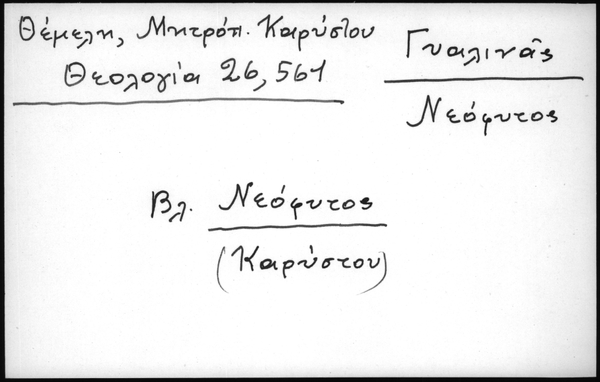 Θέμελη, Μητρόπ. Καρύστου
Θεολογία 26, 561
Γυαλινᾶς
Νεόφυτος
Βλ. Νεόφυτος
(Καρύστου)